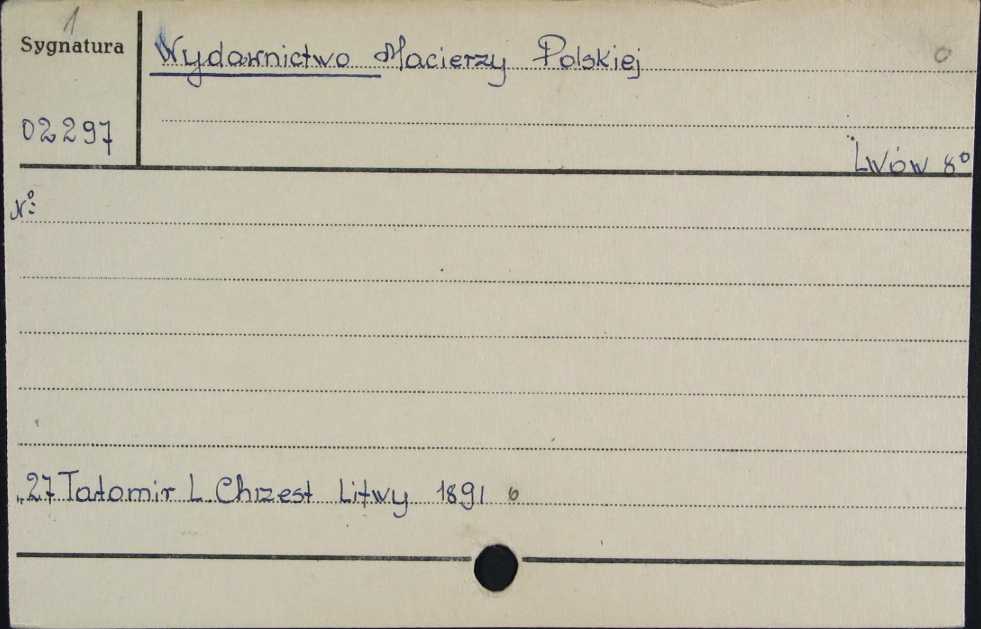 1
Sygnatura
Wydawnictwo Macierzy Polskiej
02297
Lwów 8°
N°:
27 Tatomir L Chrzest Litwy 1891